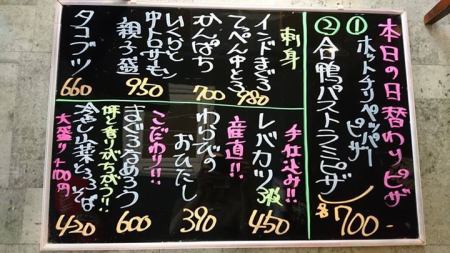 本日の日替わりピザ
①ホットチリペッパー
ピザ
②合鴨パストラミピザ
各700-
刺身
インドまぐろ
てっぺん中とろ
980
かんぱち
700
いくらと
中トロサーモン
親子盛
950
タコブツ
660
手仕込み!!
レバカツ3枚
450
産直!!
わらびの
おひたし
390
こだわり!!
まぐろなめろう
600
味と香りがちがう!!
冷し山菜とろろそば
420
大盛り+100円